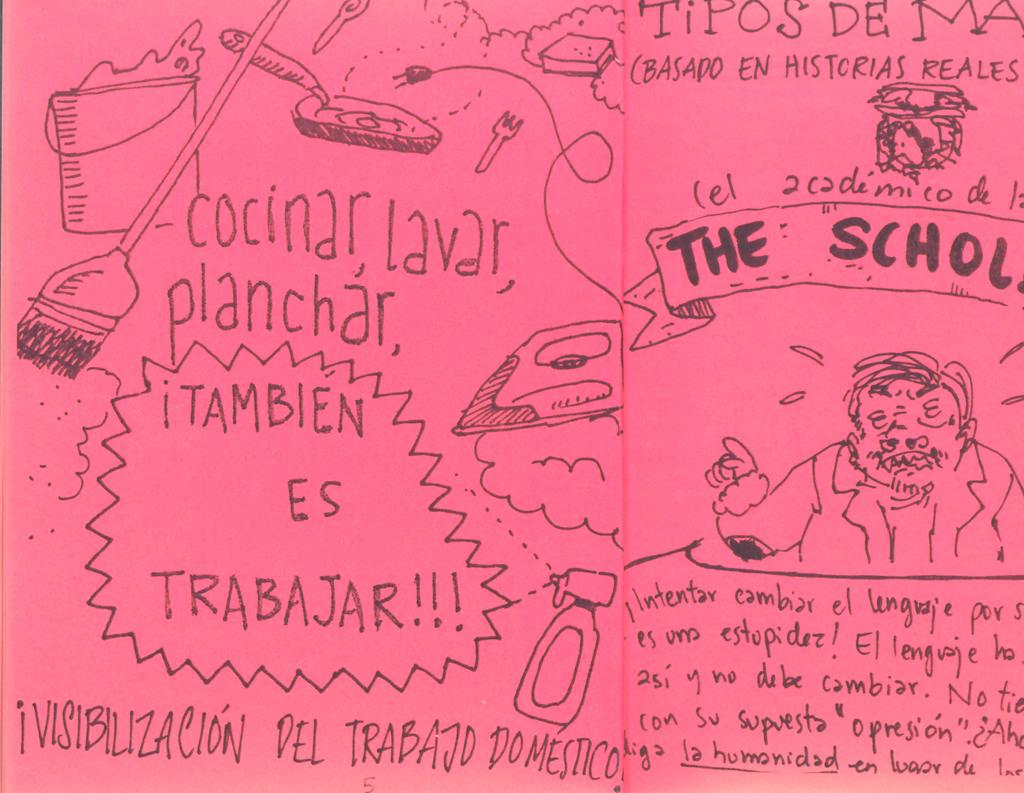 cocinar, lavar,
planchar,
¡TAMBIEN
ES
TRABAJAR!!!
¡VISIBILIZACIÓN DEL TRABAJO DOMÉSTICO
5
TIPOS DE MA
(BASADO EN HISTORIAS REALES
(el académico de la
THE SCHOL
¡Intentar cambiar el lenguaje por s
es una estupidez! El lenguaje ha
así y no debe cambiar. No tie
con su supuesta "opresión". ¿Aho
diga la humanidad en lugar de los